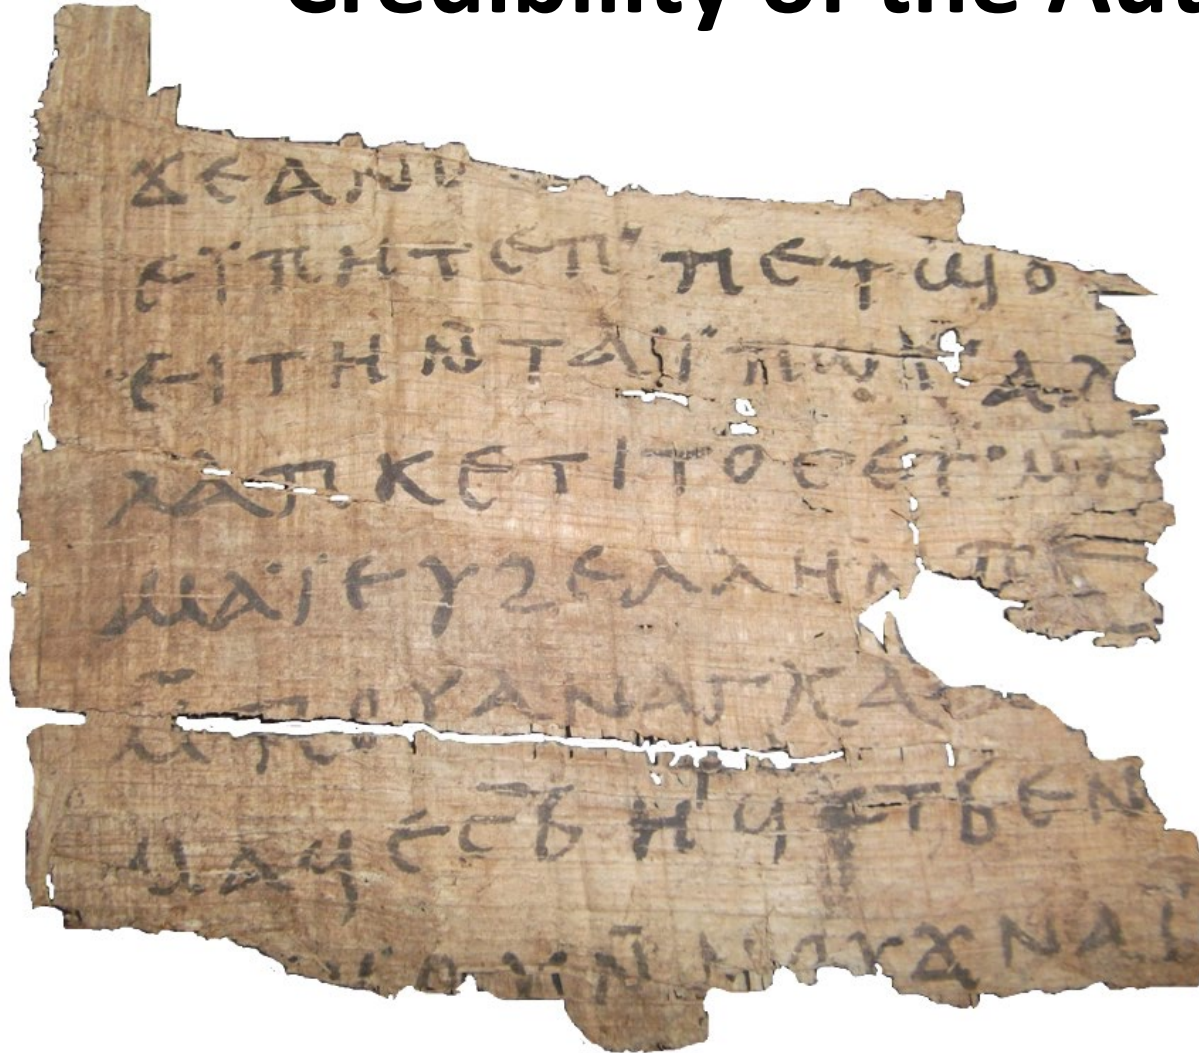 Credibility of the
ϫⲉⲁⲛ
ⲉⲓ̈ⲡⲏⲧⲉⲡ' ⲡⲉⲧϣⲟ
ⲉⲓⲧⲏⲛ̄ⲧⲁⲓ̈ ⲡⲱⲛ' ⲁⲗ
ⲗⲁⲡⲕⲉⲧⲓⲧⲟⲥⲉⲧ' ⲛⲙ
ⲙⲁⲓ̈ⲉⲩϩⲉⲗⲗⲏⲛ ⲡⲉ
ⲙ̄ⲡⲟⲩⲁⲛⲁⲅⲕⲁ
ⲙⲁϥⲉⲥⲃ̄ⲃⲏϥ ⲉⲧⲃⲉⲛ
ⲟⲩⲛ̄ ⲛⲟⲩϫ ⲛⲁⲓ̈